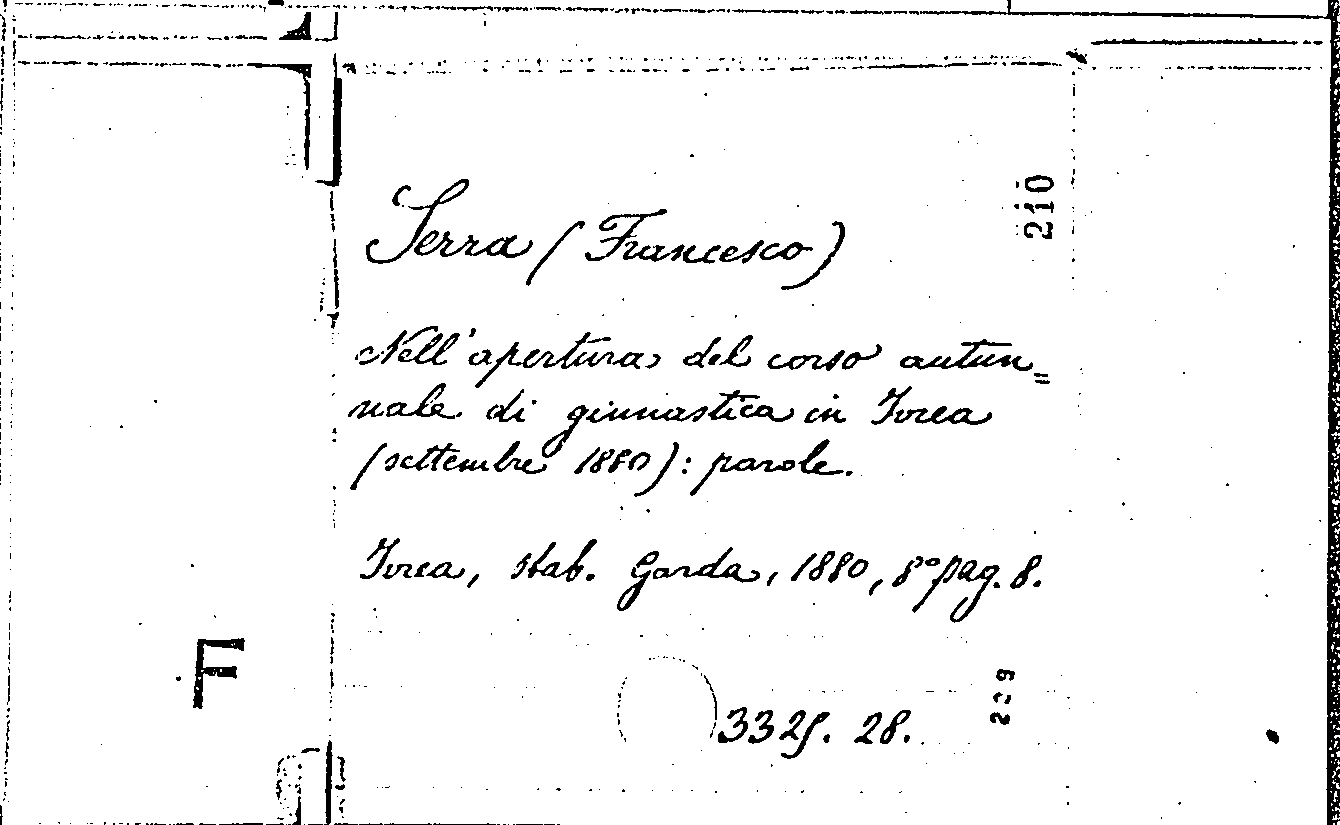 210
Serra (Francesco)
Nell'apertura del corso autun=
nale di ginnastica in Ivrea
(settembre 1880): parole.
Ivrea, stab. Garda, 1880, 8° pag. 8.
F
28.